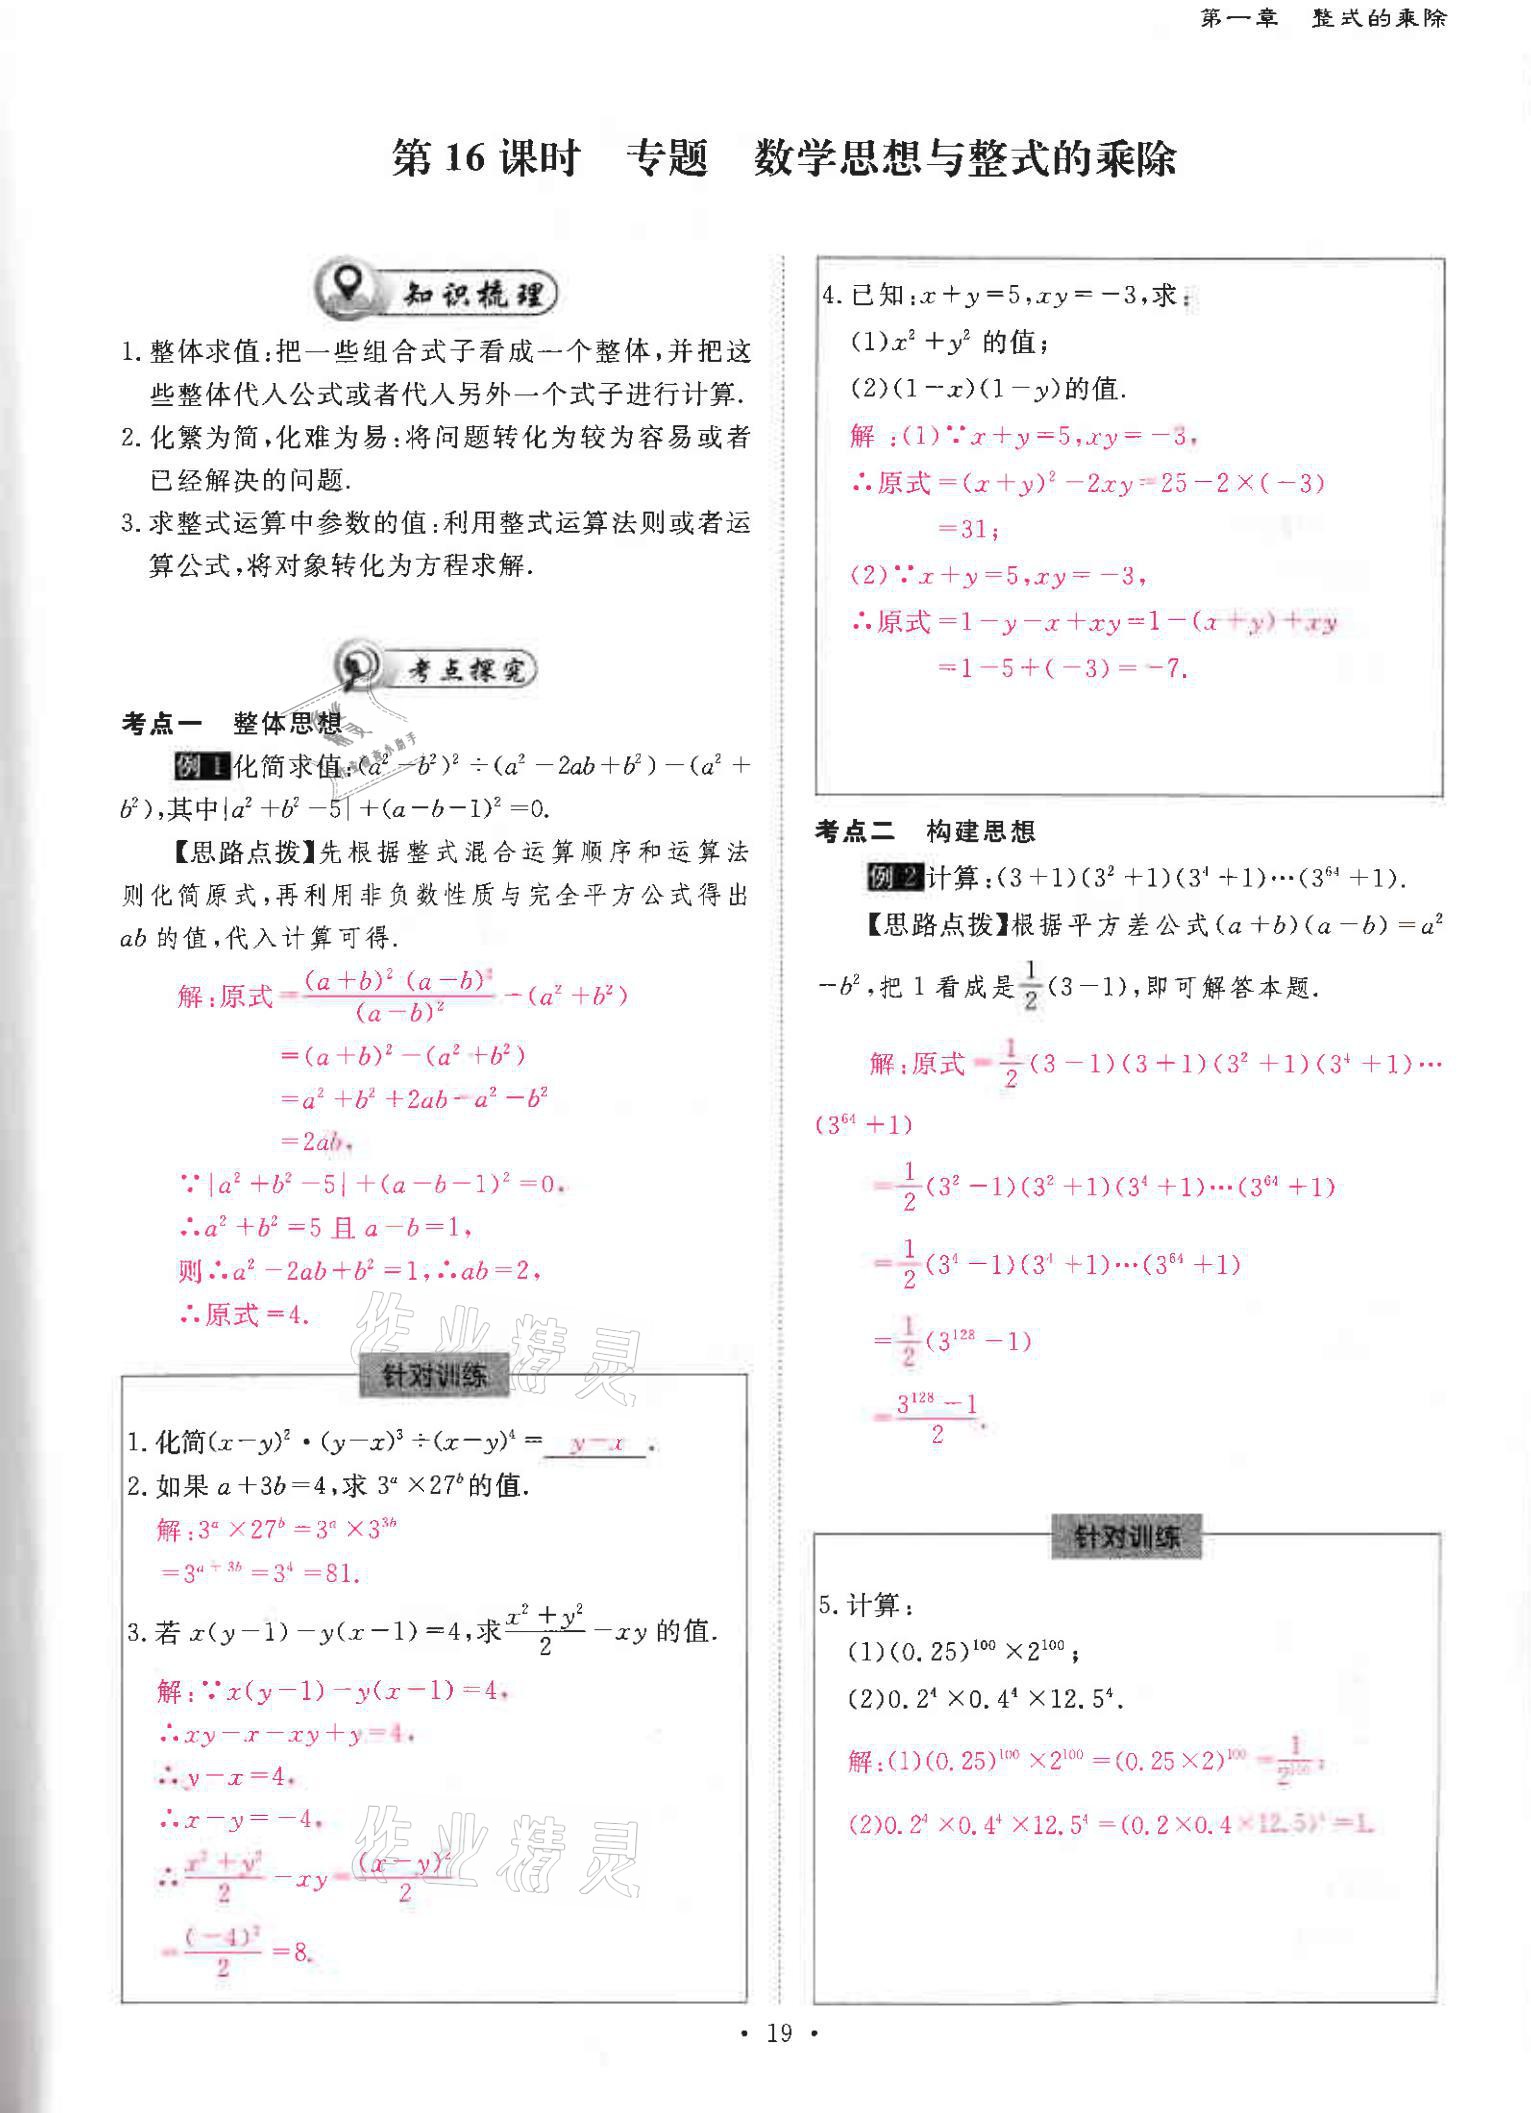 第一章　整式的乘除
第 16 课时　专题　数学思想与整式的乘除
知识梳理
1. 整体求值:把一些组合式子看成一个整体,并把这
些整体代人公式或者代人另外一个式子进行计算.
2. 化繁为简,化难为易:将问题转化为较为容易或者
已经解决的问题.
3. 求整式运算中参数的值:利用整式运算法则或者运
算公式,将对象转化为方程求解.
考点探究
考点一　整体思想
例 1 化简求值:(a²－b²)²÷(a²－2ab＋b²)－(a²＋
b²),其中|a²＋b²－5|＋(a－b－1)²＝0.
【思路点拨】先根据整式混合运算顺序和运算法
则化简原式,再利用非负数性质与完全平方公式得出
ab 的值,代入计算可得.
解:原式＝(a＋b)²(a－b)²/(a－b)²－(a²＋b²)
＝(a＋b)²－(a²＋b²)
＝a²＋b²＋2ab－a²－b²
＝2ab.
∵|a²＋b²－5|＋(a－b－1)²＝0.
∴a²＋b²＝5 且 a－b＝1,
则∴a²－2ab＋b²＝1,∴ab＝2,
∴原式＝4.
针对训练
1. 化简(x－y)²·(y－x)³÷(x－y)⁴＝ y－x .
2. 如果 a＋3b＝4,求 3ᵃ×27ᵇ的值.
解:3ᵃ×27ᵇ＝3ᵃ×3³ᵇ
＝3ᵃ⁺³ᵇ＝3⁴＝81.
3. 若 x(y－1)－y(x－1)＝4,求(x²＋y²)/2－xy 的值.
解:∵x(y－1)－y(x－1)＝4,
∴xy－x－xy＋y＝4,
∴y－x＝4,
∴x－y＝－4,
∴(x²＋y²)/2－xy＝(x－y)²/2
＝(－4)²/2＝8.
4. 已知:x＋y＝5,xy＝－3,求:
(1)x²＋y² 的值;
(2)(1－x)(1－y)的值.
解:(1)∵x＋y＝5,xy＝－3,
∴原式＝(x＋y)²－2xy＝25－2×(－3)
＝31;
(2)∵x＋y＝5,xy＝－3,
∴原式＝1－y－x＋xy＝1－(x＋y)＋xy
＝1－5＋(－3)＝－7.
考点二　构建思想
例 2 计算:(3＋1)(3²＋1)(3⁴＋1)⋯(3⁶⁴＋1).
【思路点拨】根据平方差公式(a＋b)(a－b)＝a²
－b²,把 1 看成是1/2(3－1),即可解答本题.
解:原式＝1/2(3－1)(3＋1)(3²＋1)(3⁴＋1)⋯
(3⁶⁴＋1)
＝1/2(3²－1)(3²＋1)(3⁴＋1)⋯(3⁶⁴＋1)
＝1/2(3⁴－1)(3⁴＋1)⋯(3⁶⁴＋1)
＝1/2(3¹²⁸－1)
＝(3¹²⁸－1)/2.
针对训练
5. 计算:
(1)(0.25)¹⁰⁰×2¹⁰⁰;
(2)0.2⁴×0.4⁴×12.5⁴.
解:(1)(0.25)¹⁰⁰×2¹⁰⁰＝(0.25×2)¹⁰⁰＝1/2¹⁰⁰;
(2)0.2⁴×0.4⁴×12.5⁴＝(0.2×0.4×12.5)⁴＝1.
作业精灵
作业精灵
· 19 ·